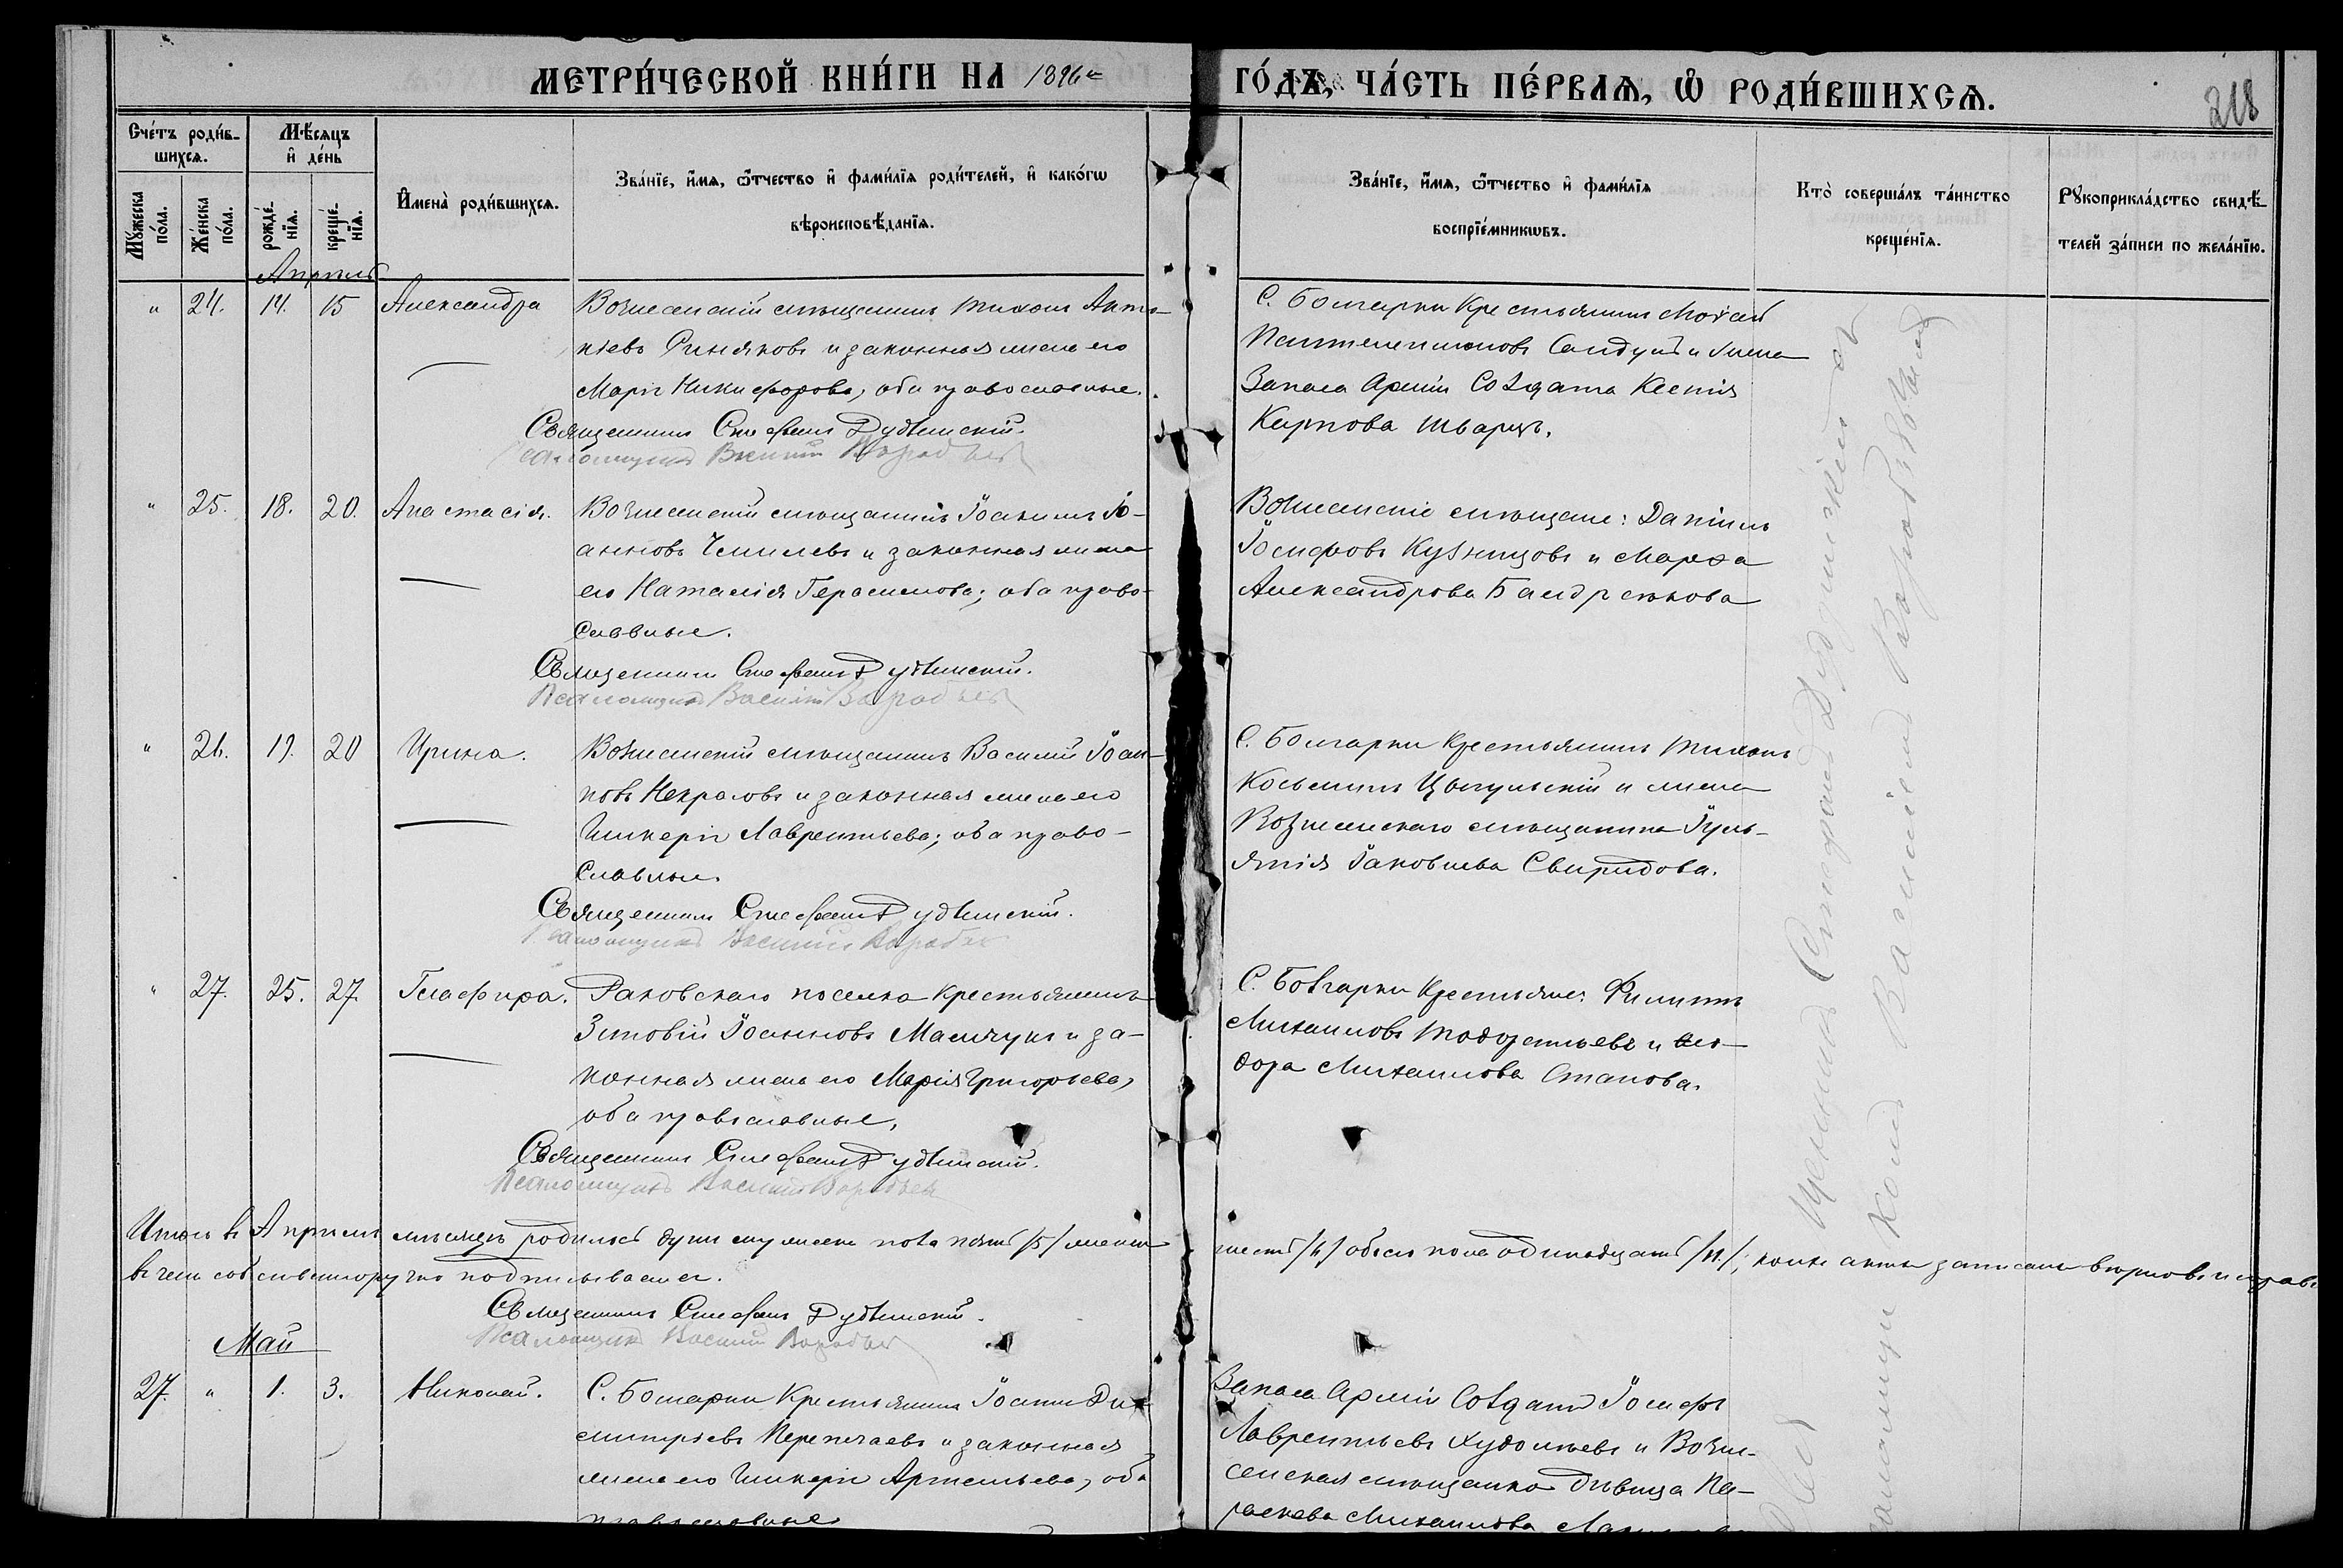 МЕТРИ́ЧЕСКОЙ КНИ́ГИ НА 1896й ГО́ДЪ, ЧА́СТЬ ПЕ́РВАѦ, Ѿ РОДИ́ВШИХСѦ.
218
Сче́тъ роди́в-
шихсѧ.
Мѣ́сѧцъ
и҆ де́нь
Мꙋ́жеска
по́ла.
Же́нска
по́ла.
рожде́-
нїѧ.
креще́-
нїѧ.
И҆мена̀ роди́вшихсѧ.
Зва́нїе, и҆́мѧ, ѻ҆́тчество и҆ фами́лїѧ роди́телей, и҆ како́гѡ
вѣроисповѣ́данїѧ.
Зва́нїе, и҆́мѧ, ѻ҆́тчество и҆ фами́лїѧ
воспрїе́мникѡвъ.
Кто̀ соверша́лъ та́инство
креще́нїѧ.
Рꙋкоприкла́дство свидѣ́-
телей за́писи по жела́нїю.
Апрѣль
" 24. 14. 15 Александра
Вознесенскій мѣщанинъ Тихонъ
и законная жена его
Марія Никифорова, оба православные.
Священникъ Стефанъ Дудинскій.
Псаломщикъ Василій Воробьевъ
С. Болгарки Крестьянинъ Мойсей
Пантелеимоновъ Сандулъ и жена
Запаса Арміи Солдата Ксенія
Карпова Шварцъ.
" 25. 18. 20. Анастасія.
Вознесенскій мѣщанинъ Іоакимъ Іо-
анновъ и законная жена
его Наталія Герасимова; оба право-
славные.
Священникъ Стефанъ Дудинскій.
Псаломщикъ Василій Воробьевъ
Вознесенскіе мѣщане: Даніилъ
Іосифовъ Кузнецовъ и Марѳа
Александрова
" 26. 19. 20 Ирина.
Вознесенскій мѣщанинъ Василій Іоан-
новъ Некрасовъ и законная жена его
Гликерія Лаврентьева; оба право-
славные.
Священникъ Стефанъ Дудинскій.
Псаломщикъ Василій Воробьевъ
С. Болгарки Крестьянинъ Тихонъ
Косьминъ Цыгульскій и жена
Вознесенскаго мѣщанина Іуль-
янія Іаковлева Свиридова.
" 27. 25. 27. Глафира.
Раковскаго поселка Крестьянинъ
Зиновій Іоанновъ Мамчукъ и за-
конная жена его Марія Григорьева,
оба православные.
Священникъ Стефанъ Дудинскій.
Псаломщикъ Василій Воробьевъ
С. Болгарки Крестьяне: Филиппъ
Михаиловъ и Ѳео-
дора Михаилова Станова.
Итого въ Апрѣлѣ мѣсяцѣ родилось душъ мужеска пола пять /5/ женска шесть /6/ обоего пола одинадцать /11/, коихъ акты записаны
въ чемъ собственноручно подписываемся.
Священникъ Стефанъ Дудинскій.
Псаломщикъ Василій Воробьевъ
Май
27. " 1. 3. Николай.
С. Болгарки Крестьянинъ Іоаннъ Ди-
митріевъ Перепечаевъ и законная
жена его Гликерія Артемьева, оба
православные
Запаса Арміи Солдатъ Іосифъ
Лаврентьевъ и Возне-
сенская мѣщанка дѣвица Па-
раскева Михаилова
Священникъ Стефанъ Дудинскій съ
Псаломщикомъ Василіемъ Воробьевымъ